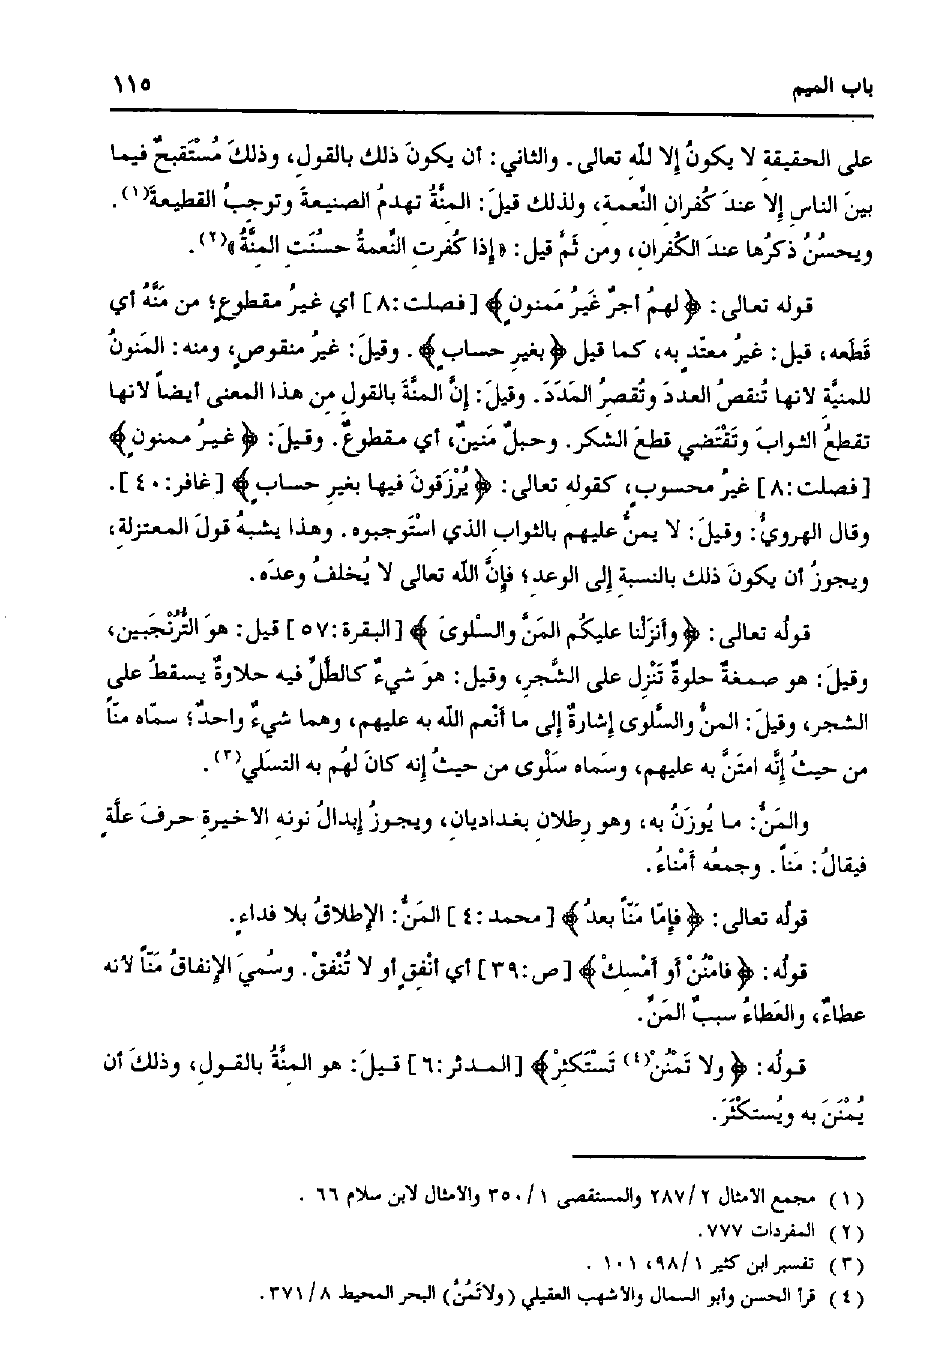 باب الميم
١١٥
على الحقيقة لا يكونُ إلا لله تعالى. والثاني: أن يكونَ ذلك بالقول، وذلكَ مُسْتَقبحٌ فيما
بينَ الناسِ إلا عندَ كُفرانِ النِّعمة، ولذلك قيلَ: المنَّةُ تهدمُ الصنيعةَ وتوجبُ القطيعةَ(١).
ويحسُنُ ذكرُها عندَ الكُفران، ومن ثَمَّ قيل: «إذا كُفرت النِّعمةُ حسُنَت المنَّةُ»(٢).
قوله تعالى: ﴿لهمُ أجرٌ غَيرُ مَمنونٍ﴾ [فصلت:٨] أي غيرُ مقطوعٍ؛ من مَنَّهُ أي
قَطَعه، قيل: غيرُ معتدٍّ به، كما قيل ﴿بغيرِ حسابٍ﴾. وقيلَ: غيرُ منقوصٍ، ومنه: المَنونُ
للمنيَّة لانها تُنقصُ العددَ وتُقصرُ المَدَدَ. وقيلَ: إنَّ المنَّةَ بالقولِ من هذا المعنى أيضاً لانها
تقطعُ الثوابَ وتَقْتَضي قطعَ الشكر. وحبلٌ مَنينٌ، أي مقطوعٌ. وقيلَ: ﴿غيرُ ممنونٍ﴾
[فصلت:٨] غيرُ محسوبٍ، كقوله تعالى: ﴿يُرْزَقونَ فيها بغيرِ حسابٍ﴾ [غافر:٤٠].
وقال الهرويُّ: وقيلَ: لا يمنُّ عليهم بالثواب الذي استَوجبوه. وهذا يشبهُ قولَ المعتزلة،
ويجوزُ أن يكونَ ذلك بالنسبة إلى الوعد؛ فإنَّ الله تعالى لا يُخلفُ وعدَه.
قولُه تعالى: ﴿وأنزَلْنا عليكُم المَنَّ والسَّلوىَ﴾ [البقرة:٥٧] قيل: هوَ التُّرُنْجَبين،
وقيلَ: هو صمغةٌ حلوةٌ تَنْزِل على الشَّجرِ، وقيل: هوَ شيءٌ كالطَّلِّ فيه حلاوةٌ يسقطُ على
الشجر، وقيلَ: المنُّ والسَّلوى إشارةٌ إلى ما أنْعم الله به عليهم، وهما شيءٌ واحدٌ؛ سمّاه منّاً
من حيثُ إنَّه امتَنَّ به عليهم، وسَماه سَلْوى من حيثُ إنه كانَ لهُم به التسَلي(٣).
والمَنُّ: ما يُوزَنُ به، وهو رطلان بغداديان، ويجوزُ إبدالُ نونه الاخيرةِ حرفَ علَّةٍ
فيقالُ: مَناً. وجمعُه أمْناءُ.
قولُه تعالى: ﴿فإمّا مَنّاً بعدُ﴾ [محمد:٤] المَنُّ: الإطلاقُ بلا فداءٍ.
قولُه: ﴿فامْنُنْ أو أمْسِكْ﴾ [ص:٣٩] أي أنْفِق أو لا تُنْفقْ. وسُميَ الإنفاقُ مَنّاً لانه
عطاءٌ، والعَطاءُ سببٌ المَنِّ.
قولُه: ﴿ولا تَمْنُنْ(٤) تَسْتَكثِرْ﴾ [المدثر:٦] قيلَ: هو المنَّةُ بالقولِ، وذلكَ أن
يُمْتَنَ به ويُستكْثَرَ.
(١) مجمع الامثال ٢/٢٨٧ والمستقصى ١/٣٥٠ والامثال لابن سلام ٦٦.
(٢) المفردات ٧٧٧.
(٣) تفسير ابن كثير ١/٩٨، ١٠١.
(٤) قرأ الحسن وأبو السمال والاشهب العقيلي (ولاتَمُنَّ) البحر المحيط ٨/٣٧١.